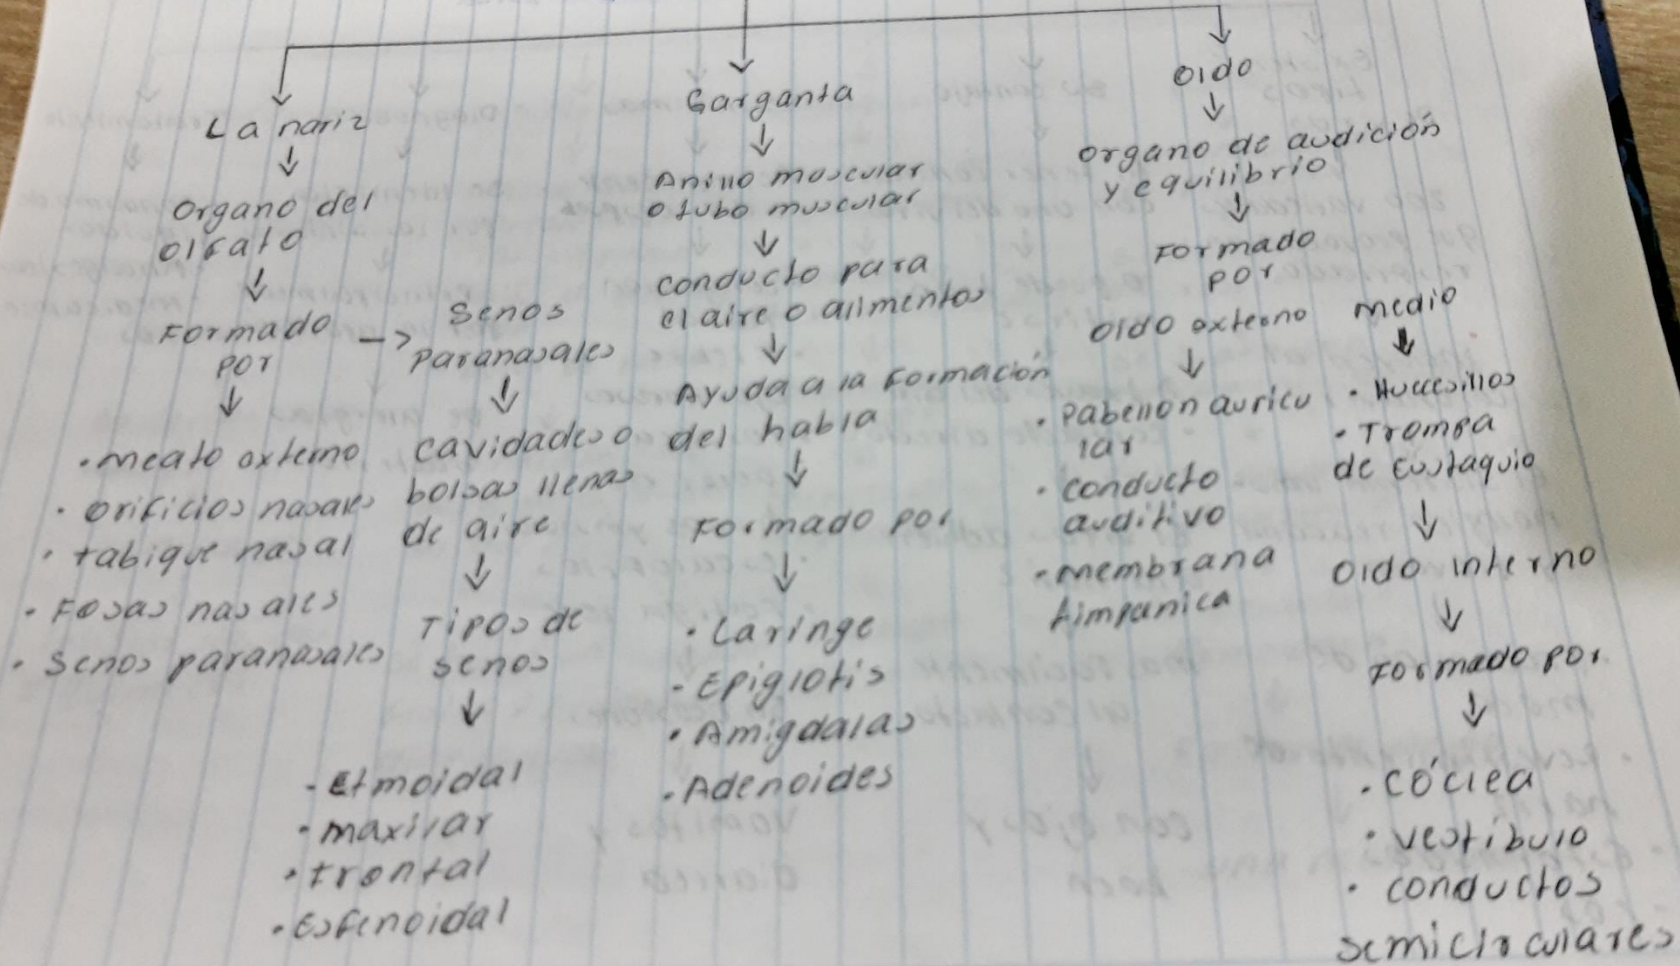 La nariz
↓
Organo del
olfato
↓
Formado
por
↓
• meato externo
• orificios nasales
• tabique nasal
• Fosas nasales
• Senos paranasales
→ Senos
paranasales
↓
cavidades o
bolsas llenas
de aire
↓
Tipos de
senos
↓
• Etmoidal
• maxilar
• frontal
• Esfenoidal
Garganta
↓
Anillo muscular
o tubo muscular
↓
conducto para
el aire o alimentos
↓
Ayuda a la formación
del habla
↓
Formado por
↓
• Laringe
- Epiglotis
• Amigdalas
• Adenoides
Oido
↓
organo de audición
y equilibrio
↓
Formado
por
Oido externo
↓
• pabellon auricu
lar
• conducto
auditivo
• membrana
timpanica
medio
↓
• Huecesillos
• Trompa
de Eustaquio
↓
Oido interno
↓
Formado por
↓
• cóclea
• vestibulo
• conductos
semicirculares